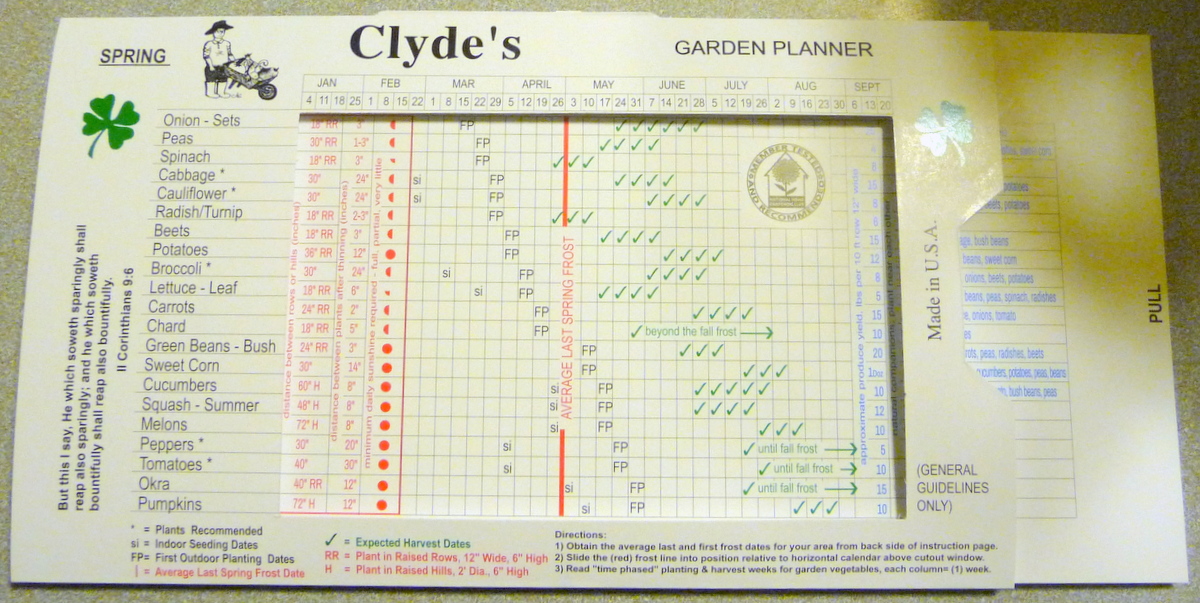 SPRING
Clyde's
GARDEN PLANNER
JAN FEB MAR APRIL MAY JUNE JULY AUG SEPT
4 11 18 25 1 8 15 22 1 8 15 22 29 5 12 19 26 3 10 17 24 31 7 14 21 28 5 12 19 26 2 9 16 23 30 6 13 20
Onion - Sets 18" RR 3" FP ✓✓✓✓✓✓
Peas 30" RR 1-3" FP ✓✓✓✓
Spinach 18" RR 3" FP ✓✓✓
Cabbage * 30" 24" si FP ✓✓✓✓ 15
Cauliflower * 30" 24" si FP ✓✓✓✓ 8
Radish/Turnip 18" RR 2-3" FP ✓✓✓ 6
Beets 18" RR 3" FP ✓✓✓✓ 15
Potatoes 36" RR 12" FP ✓✓✓✓ 12
Broccoli * 30" 24" si FP ✓✓✓✓ 8
Lettuce - Leaf 18" RR 6" si FP ✓✓✓✓ 5
Carrots 24" RR 2" FP ✓✓✓✓ 15
Chard 18" RR 5" FP ✓ beyond the fall frost 10
Green Beans - Bush 24" RR 3" FP ✓✓✓ 20
Sweet Corn 30" 14" FP ✓✓✓
Cucumbers 60" H 8" si FP ✓✓✓✓✓ 10
Squash - Summer 48" H 8" si FP ✓✓✓✓ 12
Melons 72" H 8" si FP ✓✓✓ 10
Peppers * 30" 20" si FP ✓ until fall frost 5
Tomatoes * 40" 30" si FP ✓ until fall frost 10
Okra 40" RR 12" si FP ✓ until fall frost 15
Pumpkins 72" H 12" si FP ✓✓✓ 10
distance between rows or hills (inches)
distance between plants after thinning (inches)
minimum daily sunshine required - full, partial, very little
AVERAGE LAST SPRING FROST
MEMBER TESTED
AND RECOMMENDED
approximate produce yield, lbs per 10 ft row 12" wide
But this I say, He which soweth sparingly shall
reap also sparingly; and he which soweth
bountifully shall reap also bountifully.
II Corinthians 9:6
Made in U.S.A.
PULL
potatoes
beets, potatoes
bush beans
beans, sweet corn
onions, beets, potatoes
beans, peas, spinach, radishes
onions, tomato
peas, radishes, beets
cucumbers, potatoes, peas, beans
bush beans, peas
(GENERAL
GUIDELINES
ONLY)
* = Plants Recommended
si = Indoor Seeding Dates
FP= First Outdoor Planting Dates
| = Average Last Spring Frost Date
✓ = Expected Harvest Dates
RR = Plant in Raised Rows, 12" Wide, 6" High
H = Plant in Raised Hills, 2' Dia., 6" High
Directions:
1) Obtain the average last and first frost dates for your area from back side of instruction page.
2) Slide the (red) frost line into position relative to horizontal calendar above cutout window.
3) Read "time phased" planting & harvest weeks for garden vegetables, each column= (1) week.